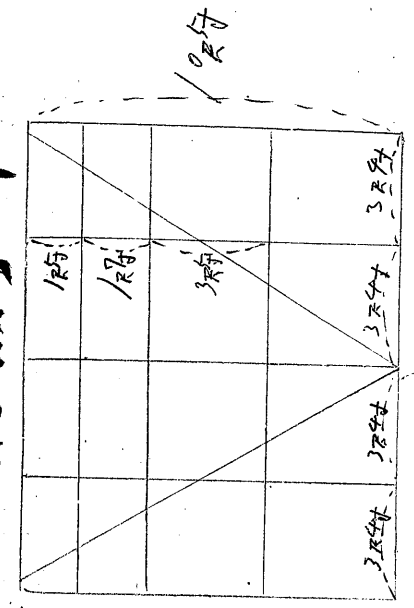 10尺5寸
1尺5寸
1尺7寸
3尺5寸
3尺4寸
3尺4寸
3尺4寸
3尺4寸